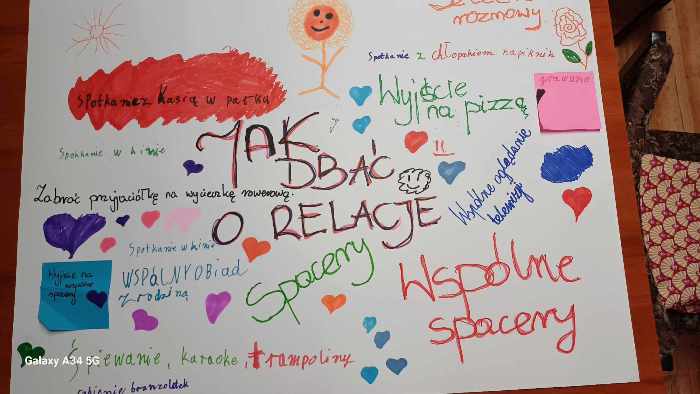 rozmowy
Spotkanie z chłopakiem na piknik
Wyjście
na pizzę
Spotkanie z Kasią w parku
JAK
DBAĆ
O RELACJE
Spotkanie w kinie
Zabrać przyjaciółkę na wycieczkę rowerową.
Wspólne oglądanie
telewizji
Spotkanie w kinie
Wyjście na
spacery
WSPÓLNY OBIAD
z rodziną
Spacery
Wspólne
spacery
Śpiewanie, karaoke, trampoliny
robienie bransoletek
Galaxy A34 5G